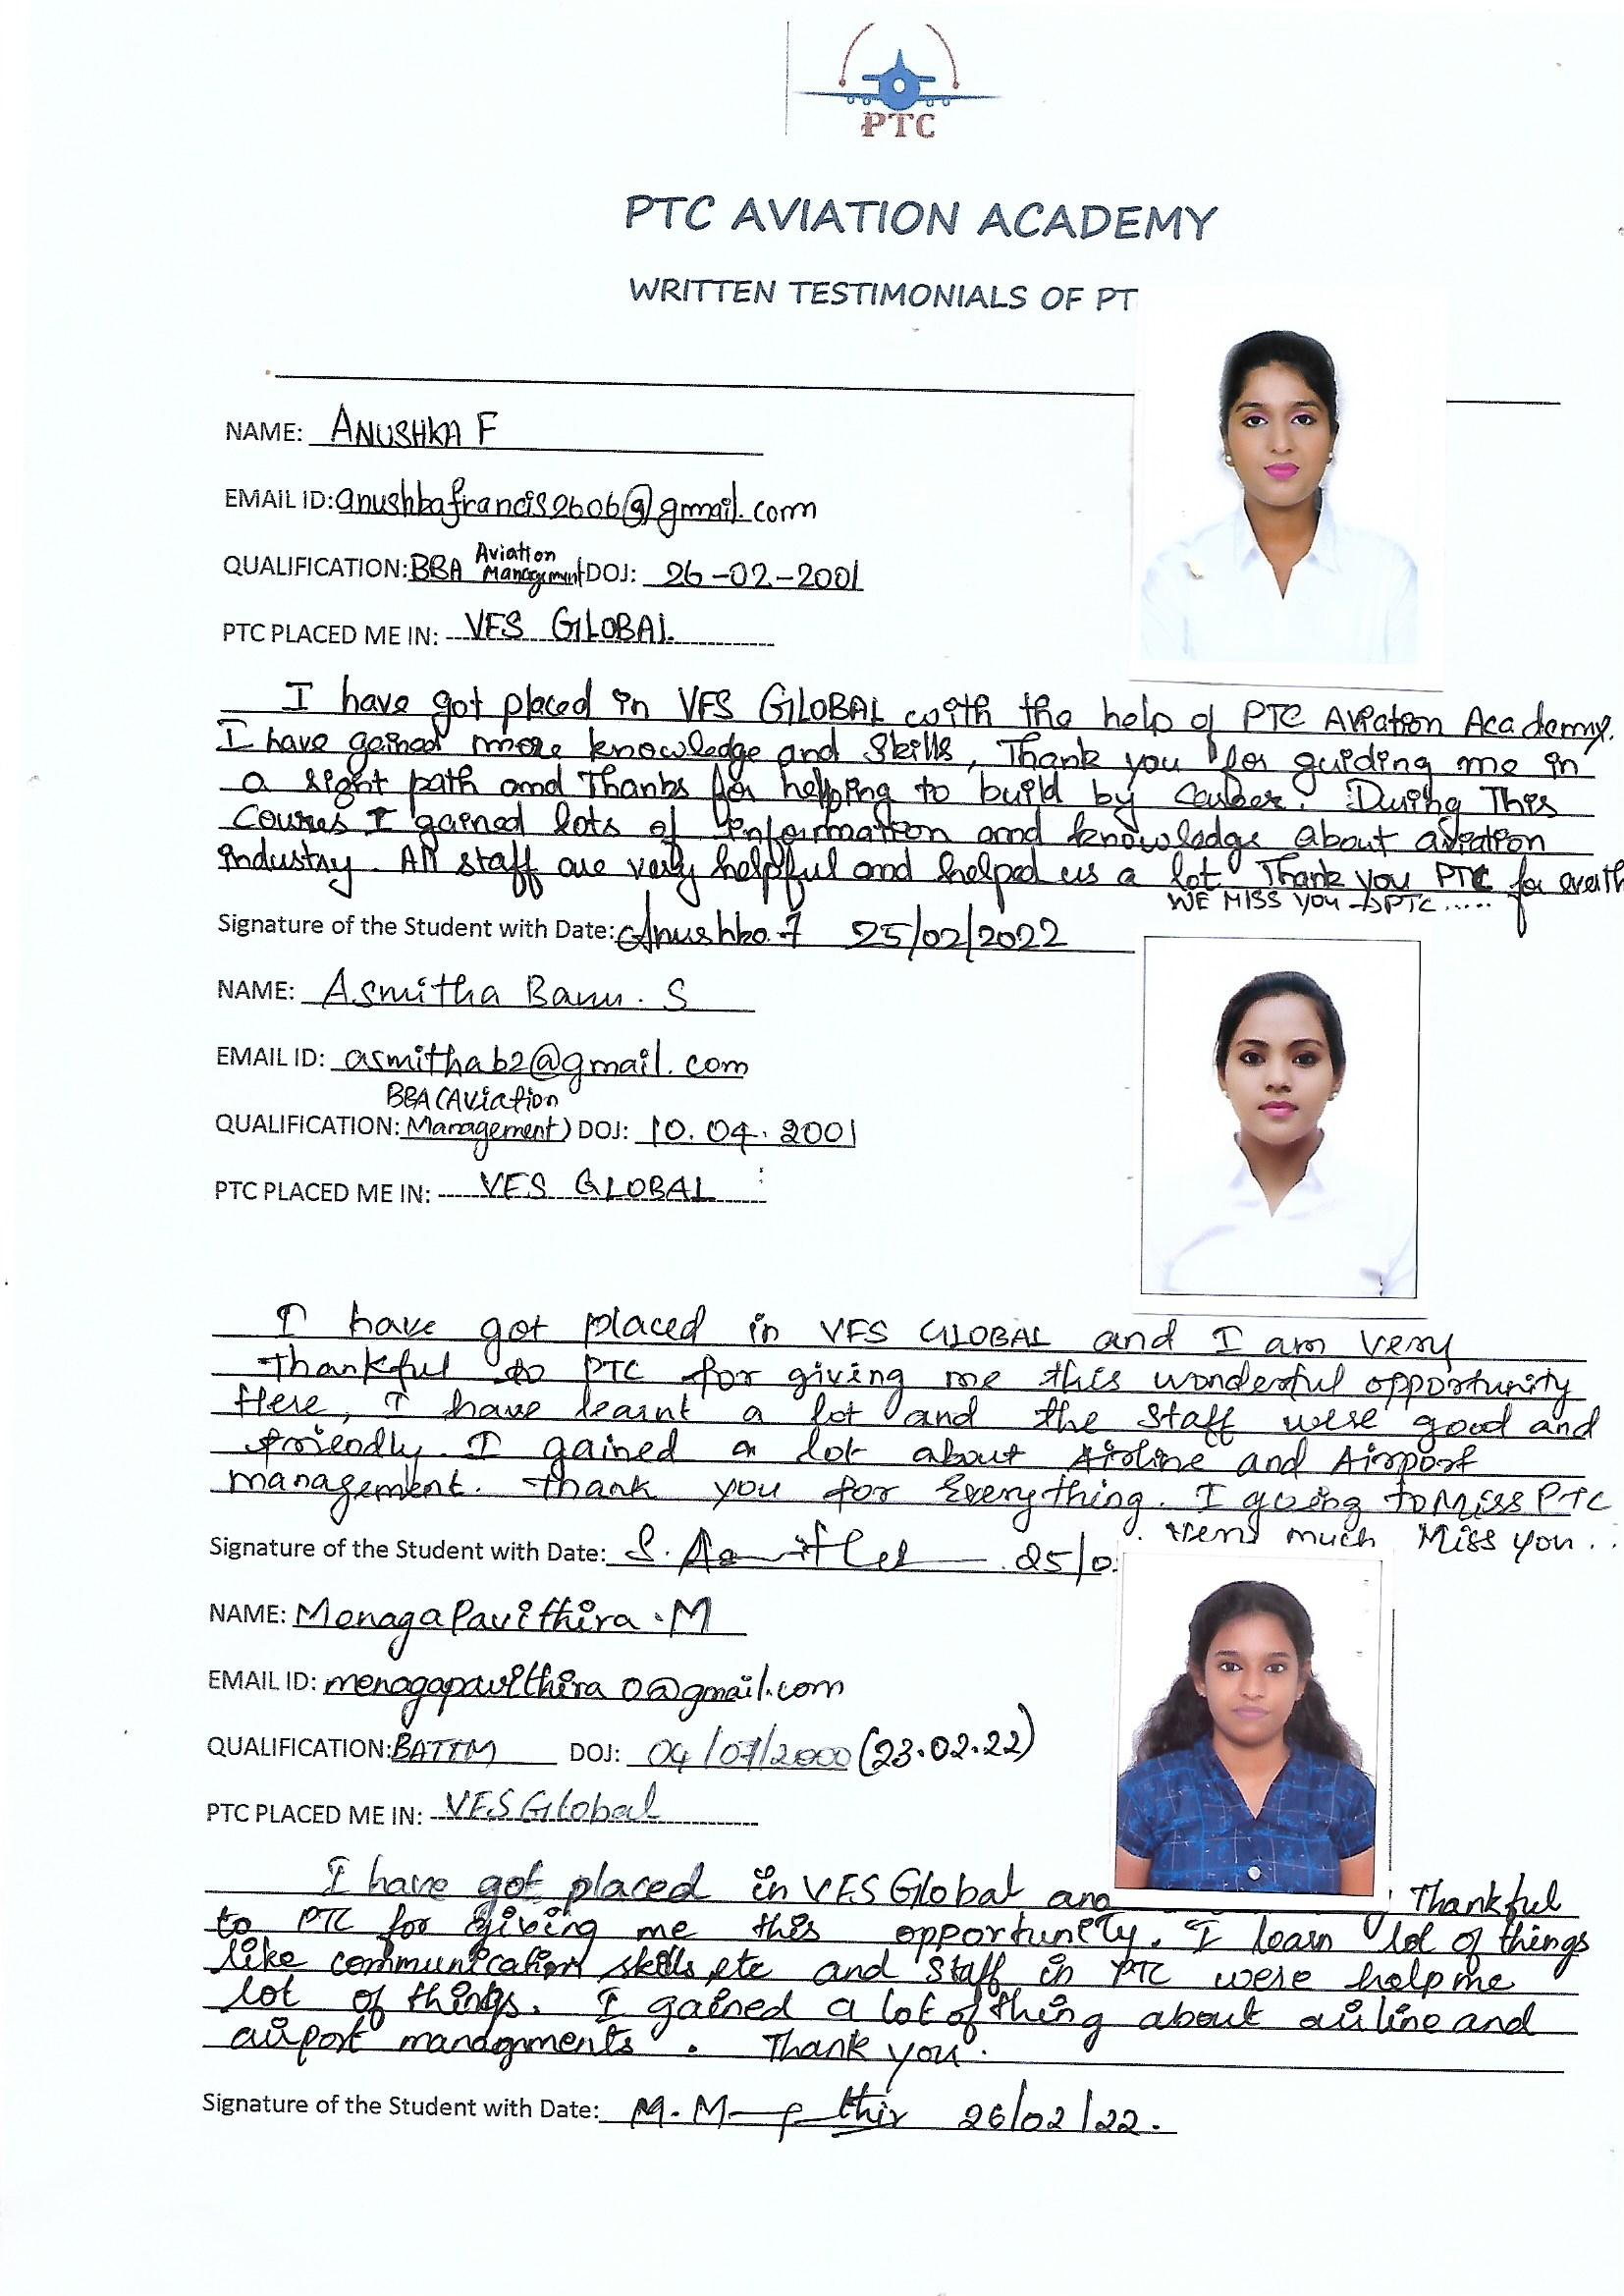 PTC
PTC AVIATION ACADEMY
WRITTEN TESTIMONIALS OF PT
NAME: ANUSHKA F
EMAIL ID: anushkafrancis2606@gmail.com
QUALIFICATION: BBA Aviation Management DOJ: 26-02-2001
PTC PLACED ME IN: VFS GLOBAL
I have got placed in VFS GLOBAL with the help of PTC Aviation Academy.
I have gained more knowledge and skills, Thank you for guiding me in
a right path and Thanks for helping to build by career. During This
Courses I gained lots of information and knowledge about aviation
industry. All staff are very helpful and helped us a lot Thank you PTC for
WE MISS YOU PTC.....
Signature of the Student with Date: Anushka.F 25/02/2022
NAME: Asmitha Banu. S
EMAIL ID: asmithab2@gmail.com
BBA (Aviation
QUALIFICATION: Management) DOJ: 10.04.2001
PTC PLACED ME IN: VFS GLOBAL
I have got placed in VFS GLOBAL and I am very
thankful to PTC for giving me this wonderful opportunity
Here, I have learnt a lot and the staff were good and
friendly. I gained a lot about Airline and Airport
management. Thank you for Everything. I going to Miss PTC
much Miss you..
Signature of the Student with Date: 25/0
NAME: MenagaPavithira.M
EMAIL ID: menagapavithira0@gmail.com
QUALIFICATION: BATTM DOJ: 04/07/2000 (23.02.22)
PTC PLACED ME IN: VFS Global
I have got placed in VFS Global and Thankful
to PTC for giving me this opportunity. I learn lot of things
like communication skills etc and staff in PTC were help me
lot of things. I gained a lot of thing about airline and
airport managnments. Thank you.
Signature of the Student with Date: 26/02/22.